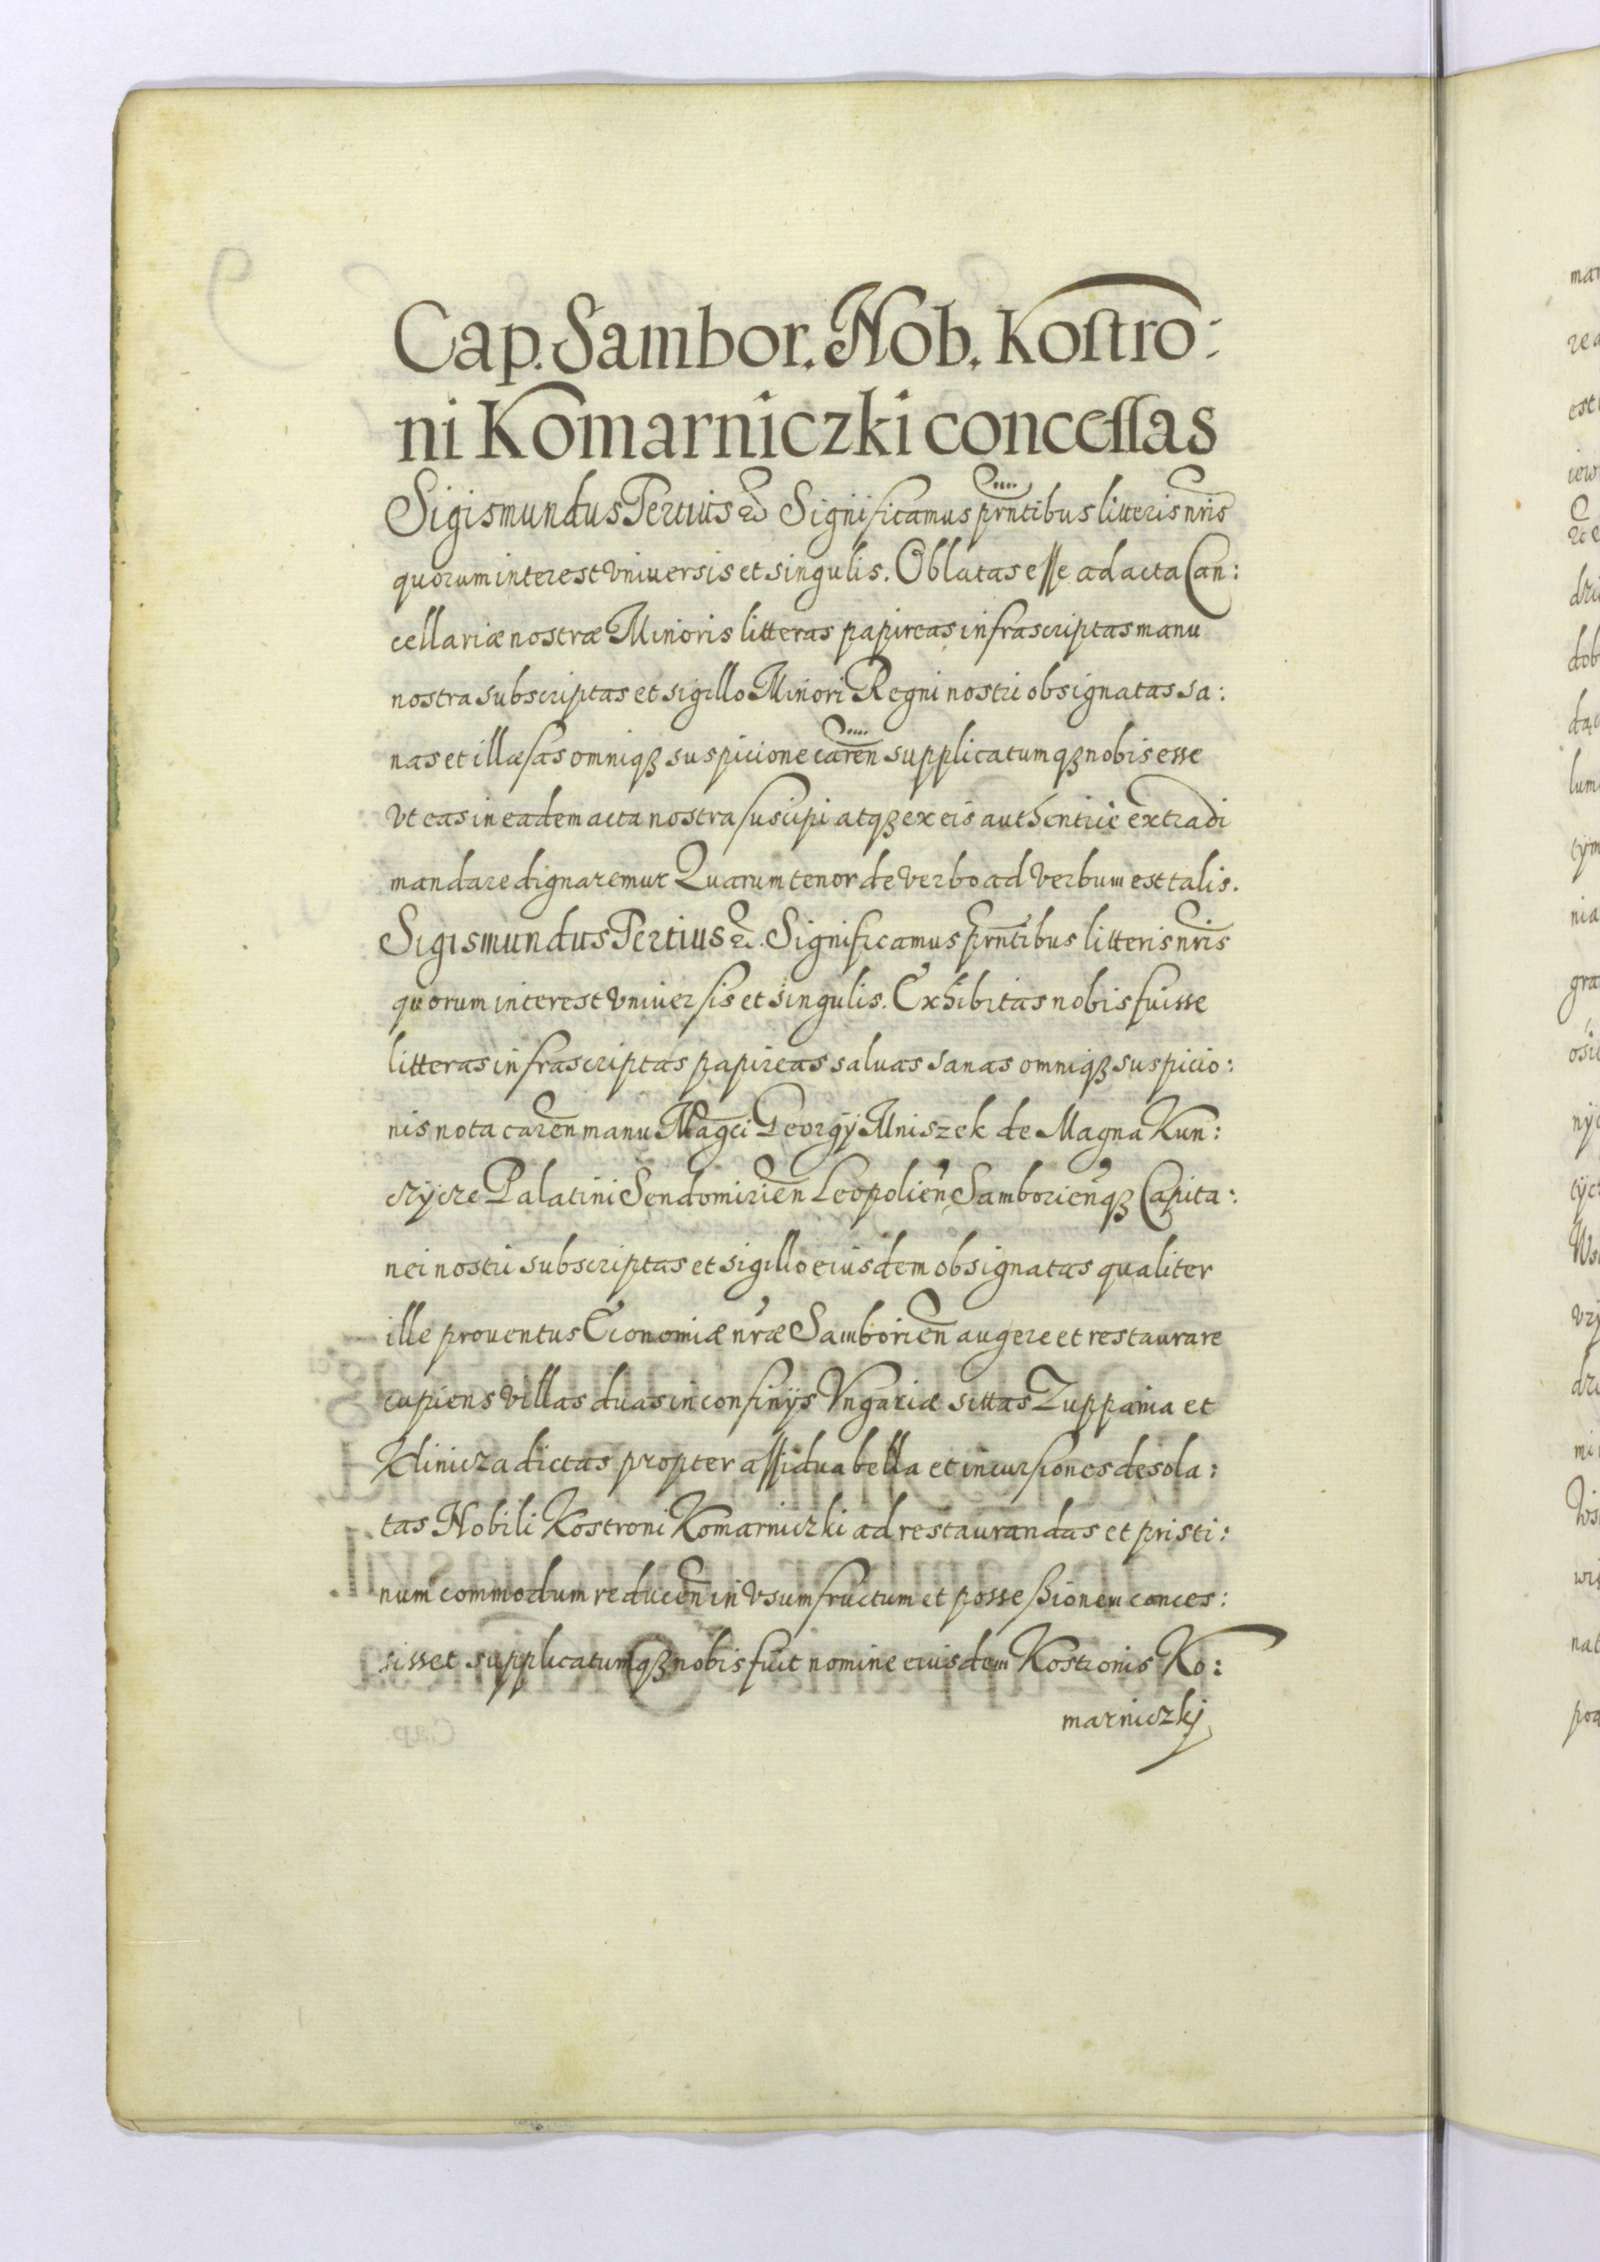 Cap. Sambor. Nob. Kostro:
ni Komarniczki concessas
Sigismundus Tertius &c Significamus prntibus litteris nris
quorum interest vniuersis et singulis. Oblatas esse ad acta Can:
cellariæ nostræ Minoris litteras papireas infrascriptas manu
nostra subscriptas et sigillo Minori Regni nostri obsignatas sa:
nas et illæsas omniqȝ suspicione caren supplicatumqȝ nobis esse
vt eas in eadem acta nostra suscipi atqȝ ex eis authentice extradi
mandare dignaremur Quarum tenor de verbo ad verbum est talis.
Sigismundus Tertius &c. Significamus prntibus litteris nris
quorum interest vniuersis et singulis. Exhibitas nobis fuisse
litteras infrascriptas papireas saluas sanas omniqȝ suspicio:
nis nota caren manu Magci Georgij Mniszek de Magna Kun:
czycze Palatini Sendomirien Leopolien Samborienqȝ Capita:
nei nostri subscriptas et sigillo eiusdem obsignatas qualiter
ille prouentus Economiæ nræ Samborien augere et restaurare
cupiens villas duas in confinijs Vngariæ sittas Zuppania et
Klinicza dictas propter assidua bella et incursiones desola:
tas Nobili Kostroni Komarniczki ad restaurandas et pristi:
num commodum reducen in vsumfructum et possessionem conces:
sisset supplicatumqȝ nobis fuit nomine eiusdem Kostronis Ko:
marniczkj